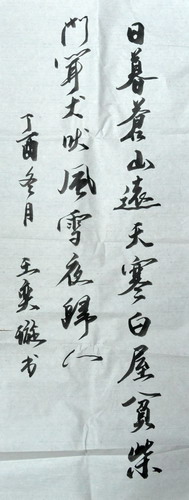 日暮蒼山遠天寒白屋貧柴
门闻犬吠風雪夜歸人
丁酉冬月 王奕璇书